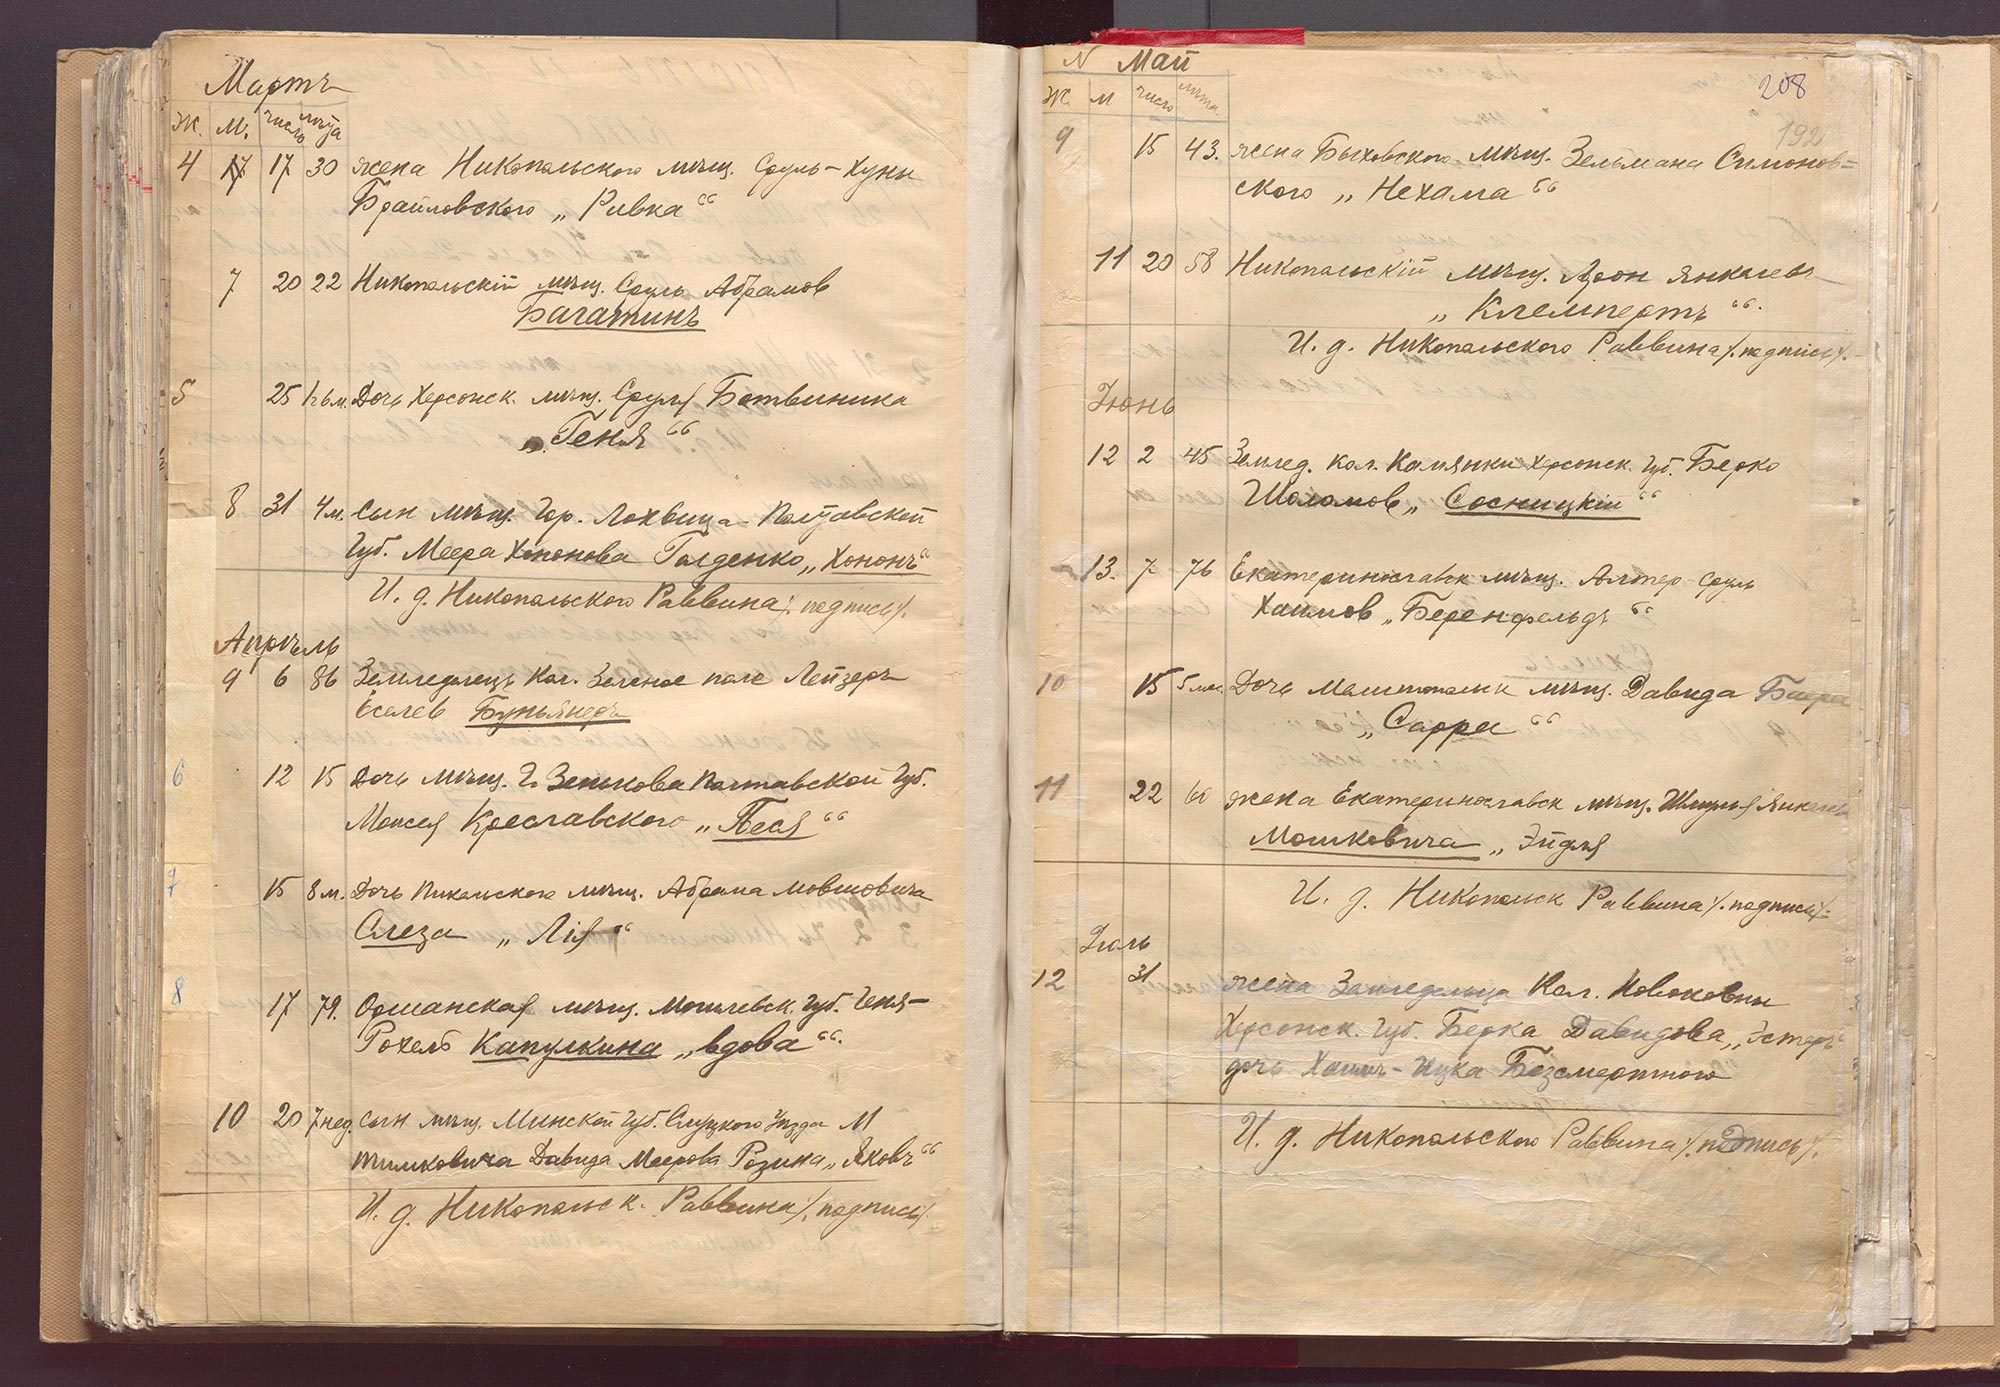 Мартъ
Ж. М. число лѣта
4 17 17 30 жена Никопольского мѣщ. Сруль-Хуны
Брайловского „Ривка“
7 20 22 Никопольскій мѣщ. Сруль Абрамов
Багатинъ
5 25 1½ м. Дочь Херсонск. мѣщ. Сруля Ботвиника
„Геня“
8 31 4 м. Сын мѣщ. Гор. Лохвица Полтавской
Губ. Меера Хононова Голденко „Хононъ“
И. д. Никопольского Раввина /. подпись/.
Апрѣль
9 6 86 Земледѣлецъ Кол. Зеленое поле Лейзеръ
Еселев
6 12 15 Дочь мѣщ. Г. Зенькова Полтавской Губ.
Моисея Креславского „Песя“
7 15 8 м. Дочь мѣщ. Абрама Мовшовича
Слеза „Лія“
8 17 79. Оршанская мѣщ. Могилевск. Губ. Геня-
Рохель Капулкина „вдова“.
10 20 7 нед. Сын мѣщ. Минской Губ. Слуцкого Уѣзда М
тимковича Давида Меерова Розина „Яковъ“
И. д. Никопольск. Раввина /. подпись/.
N Май
208
Ж. М число лѣта
192
9 15 43. жена Быховского мѣщ. Зельмана Симонов=
ского „Нехама“
11 20 58 Никопольскій мѣщ. Арон Янкелев
„Клемпертъ“.
И. д. Никопольского Раввина /. подпись/.
Іюнь
12 2 45 Землед. Кол. Камянки Херсонск. Губ. Берко
Шоломов „Сосницкій“
13. 7 76 Екатеринославск мѣщ. Алтер-Сруль
Хаимов „Беренфельдъ“
10 15 5 мес. Дочь мѣщ. Давида
„Сарра“
11 22 60 жена Екатеринославск мѣщ. Шмуля
Мошковича „Эйдля
И. д. Никопольск Раввина /. подпись/.
Іюль
12 31 жена Земледѣльца Кол. Новоковны
Херсонск. Губ. Берка Давидова „Эстеръ“
дочь Хаимъ-Ицка Безсмертного
И. д. Никопольского Раввина /. подпись/.